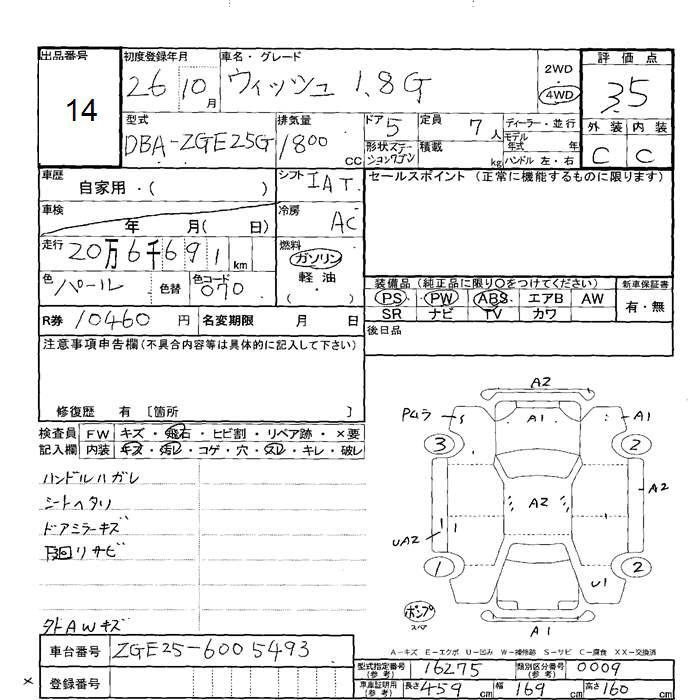 出品番号
14
初度登録年月
26 10月
車名・グレード
ウィッシュ 1.8G
2WD
4WD
評価点
3.5
外装 内装
C C
型式
DBA-ZGE25G
排気量
1800 CC
ドア 5
形状 ステーションワゴン
定員 7人
積載 kg
ディーラー・並行
モデル年式 年
ハンドル 左・右
車歴
自家用・( )
シフト IAT
セールスポイント (正常に機能するものに限ります)
車検
年 月( 日)
冷房 AC
走行
20万6千691km
燃料
ガソリン
軽・油
色 パール
色替
色コード 070
装備品 (純正品に限り〇をつけてください)
新車保証書
PS PW ABS エアB AW
SR ナビ TV カワ
有・無
R券 10460円
名変期限 月 日
後日品
注意事項申告欄(不具合内容等は具体的に記入して下さい)
修復歴 有 [箇所 ]
検査員記入欄
FW キズ・飛石・ヒビ割・リペア跡・×要
内装 キズ・汚レ・コゲ・穴・スレ・キレ・破レ
ハンドルハガレ
シートヘタリ
ドアミラーキズ
下回リサビ
外AWキズ
A2
PムラS
A1
A1
3
2
A2
A2
UA2
1
2
U1
ポンプ
スペア
A1
A-キズ E-エクボ U-凹み W-補修跡 S-サビ C-腐食 XX-交換済
車台番号 ZGE25-6005493
× 登録番号
型式指定番号(参考) 16275
類別区分番号(参考) 0009
車庫証明用(参考) 長さ 459cm 幅 169cm 高さ 160cm